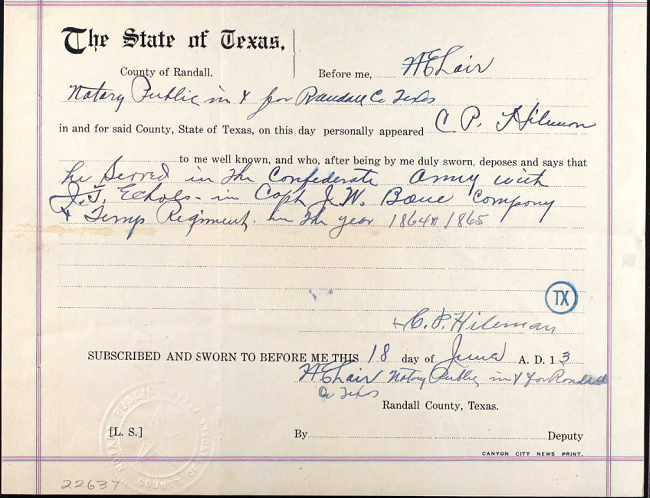 The State of Texas,
County of Randall. Before me, W E Lair
Notary Public in & for Randall Co Texas
in and for said County, State of Texas, on this day personally appeared C P. Hileman
to me well known, and who, after being by me duly sworn, deposes and says that
he Served in the Confederate Army with
J. T. Echols - in Capt J. W. Boue Company
& Temps Regiment. in the year 1864 & 1865
TX
C. P. Hileman
SUBSCRIBED AND SWORN TO BEFORE ME THIS 18 day of June A. D. 13
W E Lair Notary Public in & for Randall
Co Texas
Randall County, Texas.
[L. S.] By Deputy
CANYON CITY NEWS PRINT.
22637